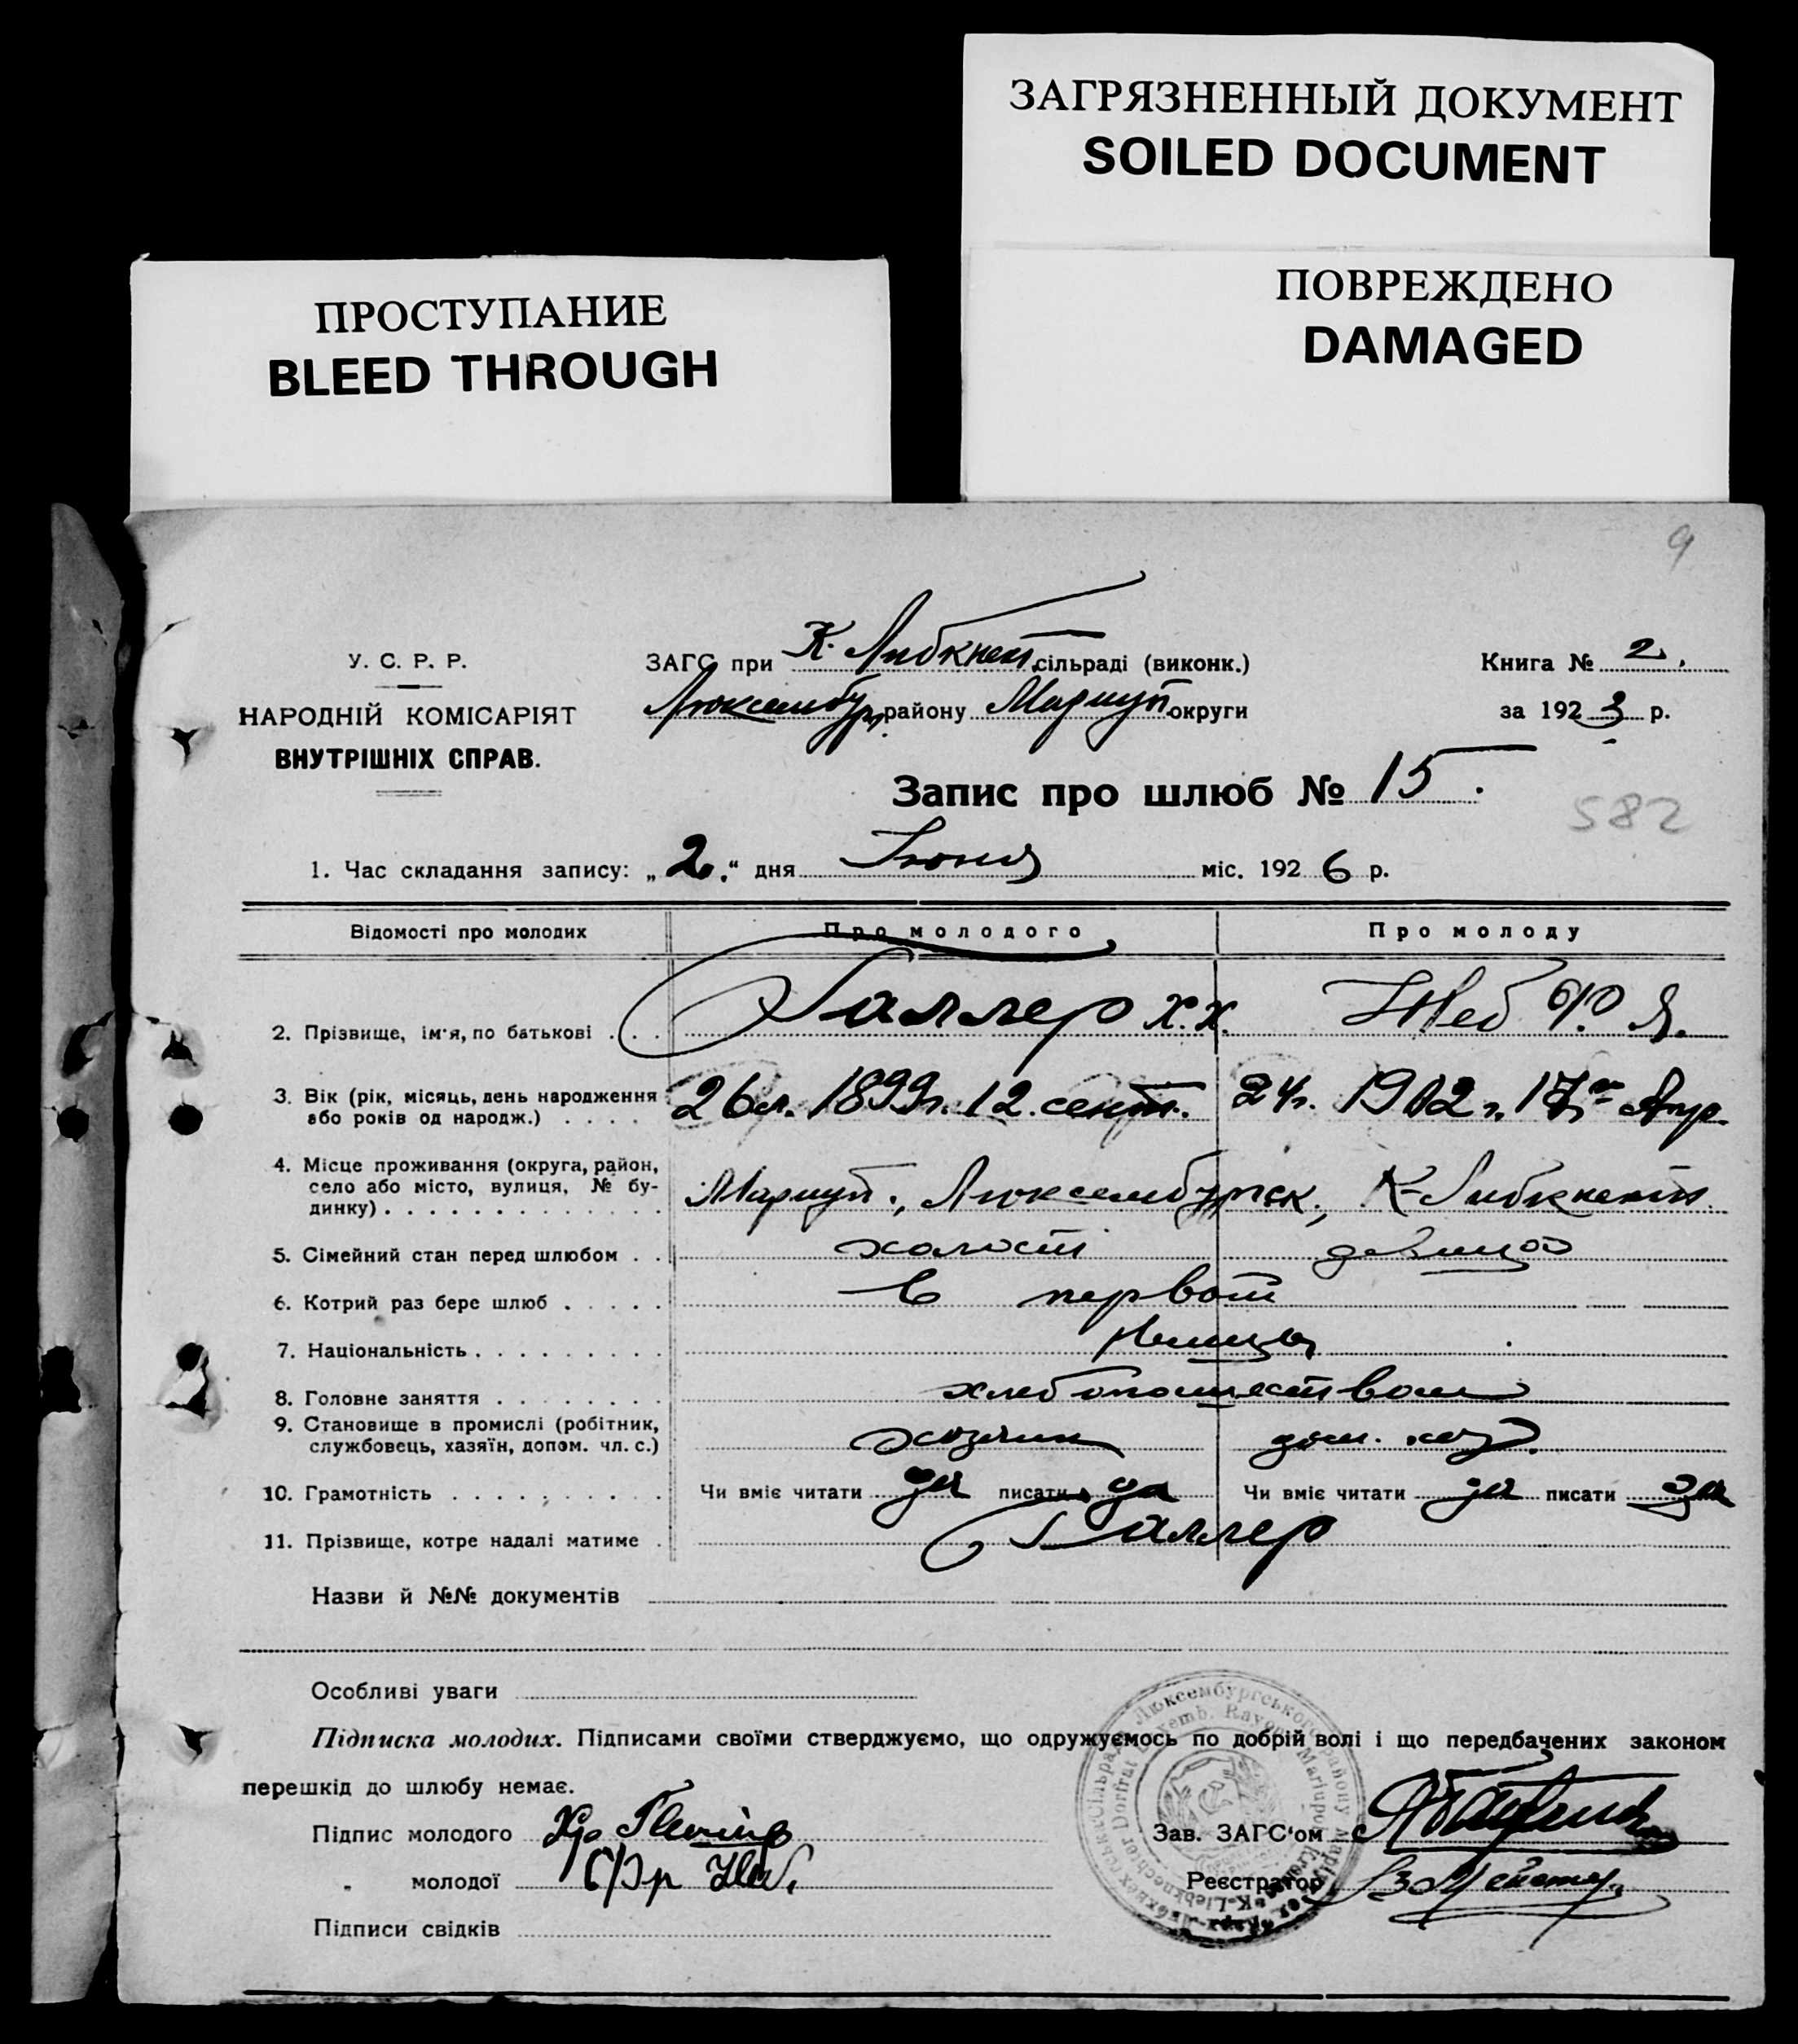 ЗАГРЯЗНЕННЫЙ ДОКУМЕНТ
SOILED DOCUMENT
ПРОСТУПАНИЕ
BLEED THROUGH
ПОВРЕЖДЕНО
DAMAGED
9
У. С. Р. Р.
НАРОДНІЙ КОМІСАРІЯТ
ВНУТРІШНІХ СПРАВ.
ЗАГС при К. Либкнехт сільраді (виконк.)
Люксембур. району Мариуп. округи
Книга № 2.
за 1923 р.
Запис про шлюб № 15.
582
1. Час складання запису: „2." дня Июня міс. 1926 р.
Відомості про молодих Про молодого Про молоду
2. Прізвище, ім'я, по батькові . . . Галлер Х.Х.
3. Вік (рік, місяць, день народження або років од народж.) . . . . 26 л. 1899 г. 12 сент. 24 г. 1902 г. 17го Апр.
4. Місце проживання (округа, район, село або місто, вулиця, № будинку) . . . Мариуп., Люксембургск., К-Либкнехт
5. Сімейний стан перед шлюбом . . холост девица
6. Котрий раз бере шлюб . . . . . в первой
7. Національність . . . . . . . . . немцы
8. Головне заняття . . . . . . . . хлебопашеством
9. Становище в промислі (робітник, службовець, хазяїн, допом. чл. с.) хозяин дом. хоз.
10. Грамотність . . . . . . . . . . Чи вміє читати да писати да Чи вміє читати да писати да
11. Прізвище, котре надалі матиме . Галлер
Назви й №№ документів
Особливі уваги
Підписка молодих. Підписами своїми стверджуємо, що одружуємось по добрій волі і що передбачених законом
перешкід до шлюбу немає.
Підпис молодого
„ молодої
Підписи свідків
Зав. ЗАГС'ом
Реєстратор